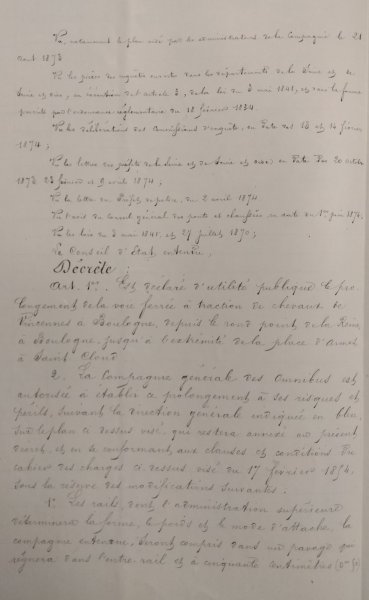 Vu, notamment le plan visé par les administrateurs de la Compagnie le 21
août 1873
Vu les pièces des enquêtes ouvertes dans les départements de la Seine et de
Seine et oise, en exécution de l'article 3, de la loi du 3 mai 1841, et dans la forme
prescrite par l'ordonnance réglementaire du 18 février 1834.
Vu les délibérations des Commissions d'enquête, en date des 13 et 14 février
1874;
Vu les lettres des préfets de la Seine et de Seine et oise, en date des 20 octobre
1873, 23 février et 9 avril 1874;
Vu la lettre du Préfet de police, du 2 avril 1874
Vu l'avis du Conseil général des ponts et chaussées, en date du 1er juin 1874,
Vu les lois du 3 mai 1841, et 27 juillet 1870;
Le Conseil d'Etat entendu,
Décrète:
Art. 1er. Est déclaré d'utilité publique le pro
longement de la voie ferrée à traction de chevaux de
Vincennes à Boulogne, depuis le rond point de la Reine,
à Boulogne, jusqu'à l'extrémité de la place d'Armes
à Saint Cloud
2. La Compagnie générale des Omnibus est
autorisée à établir ce prolongement à ses risques et
périls, suivant la direction générale indiquée en bleu,
sur le plan ci dessus visé, qui restera annexé au présent
décret, et en se conformant aux clauses et conditions du
cahier des charges ci dessus visé du 17 février 1854,
sous la réserve des modifications suivantes.
1º Les rails, dont l'administration supérieure
déterminera la forme, le poids et le mode d'attache, la
compagnie entendue, seront compris dans un pavage qui
régnera dans l'entre rail et à cinquante centimètres